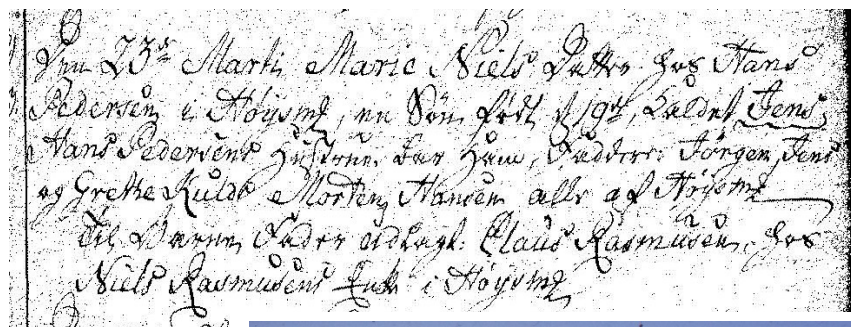 Den 23de Marti Marie Niels Datter hos Hans
Pedersen i Høysme, en Søn født d 19de, kaldet Jens,
Hans Pedersens Hustrue bar ham, Faddere: Jørgen, Jens
og Grethe Kulds Morten Hansen alle af Høysme
Til Barne Fader udlagt: Claus Rasmusen, hos
Niels Rasmusens Enke i Høysme